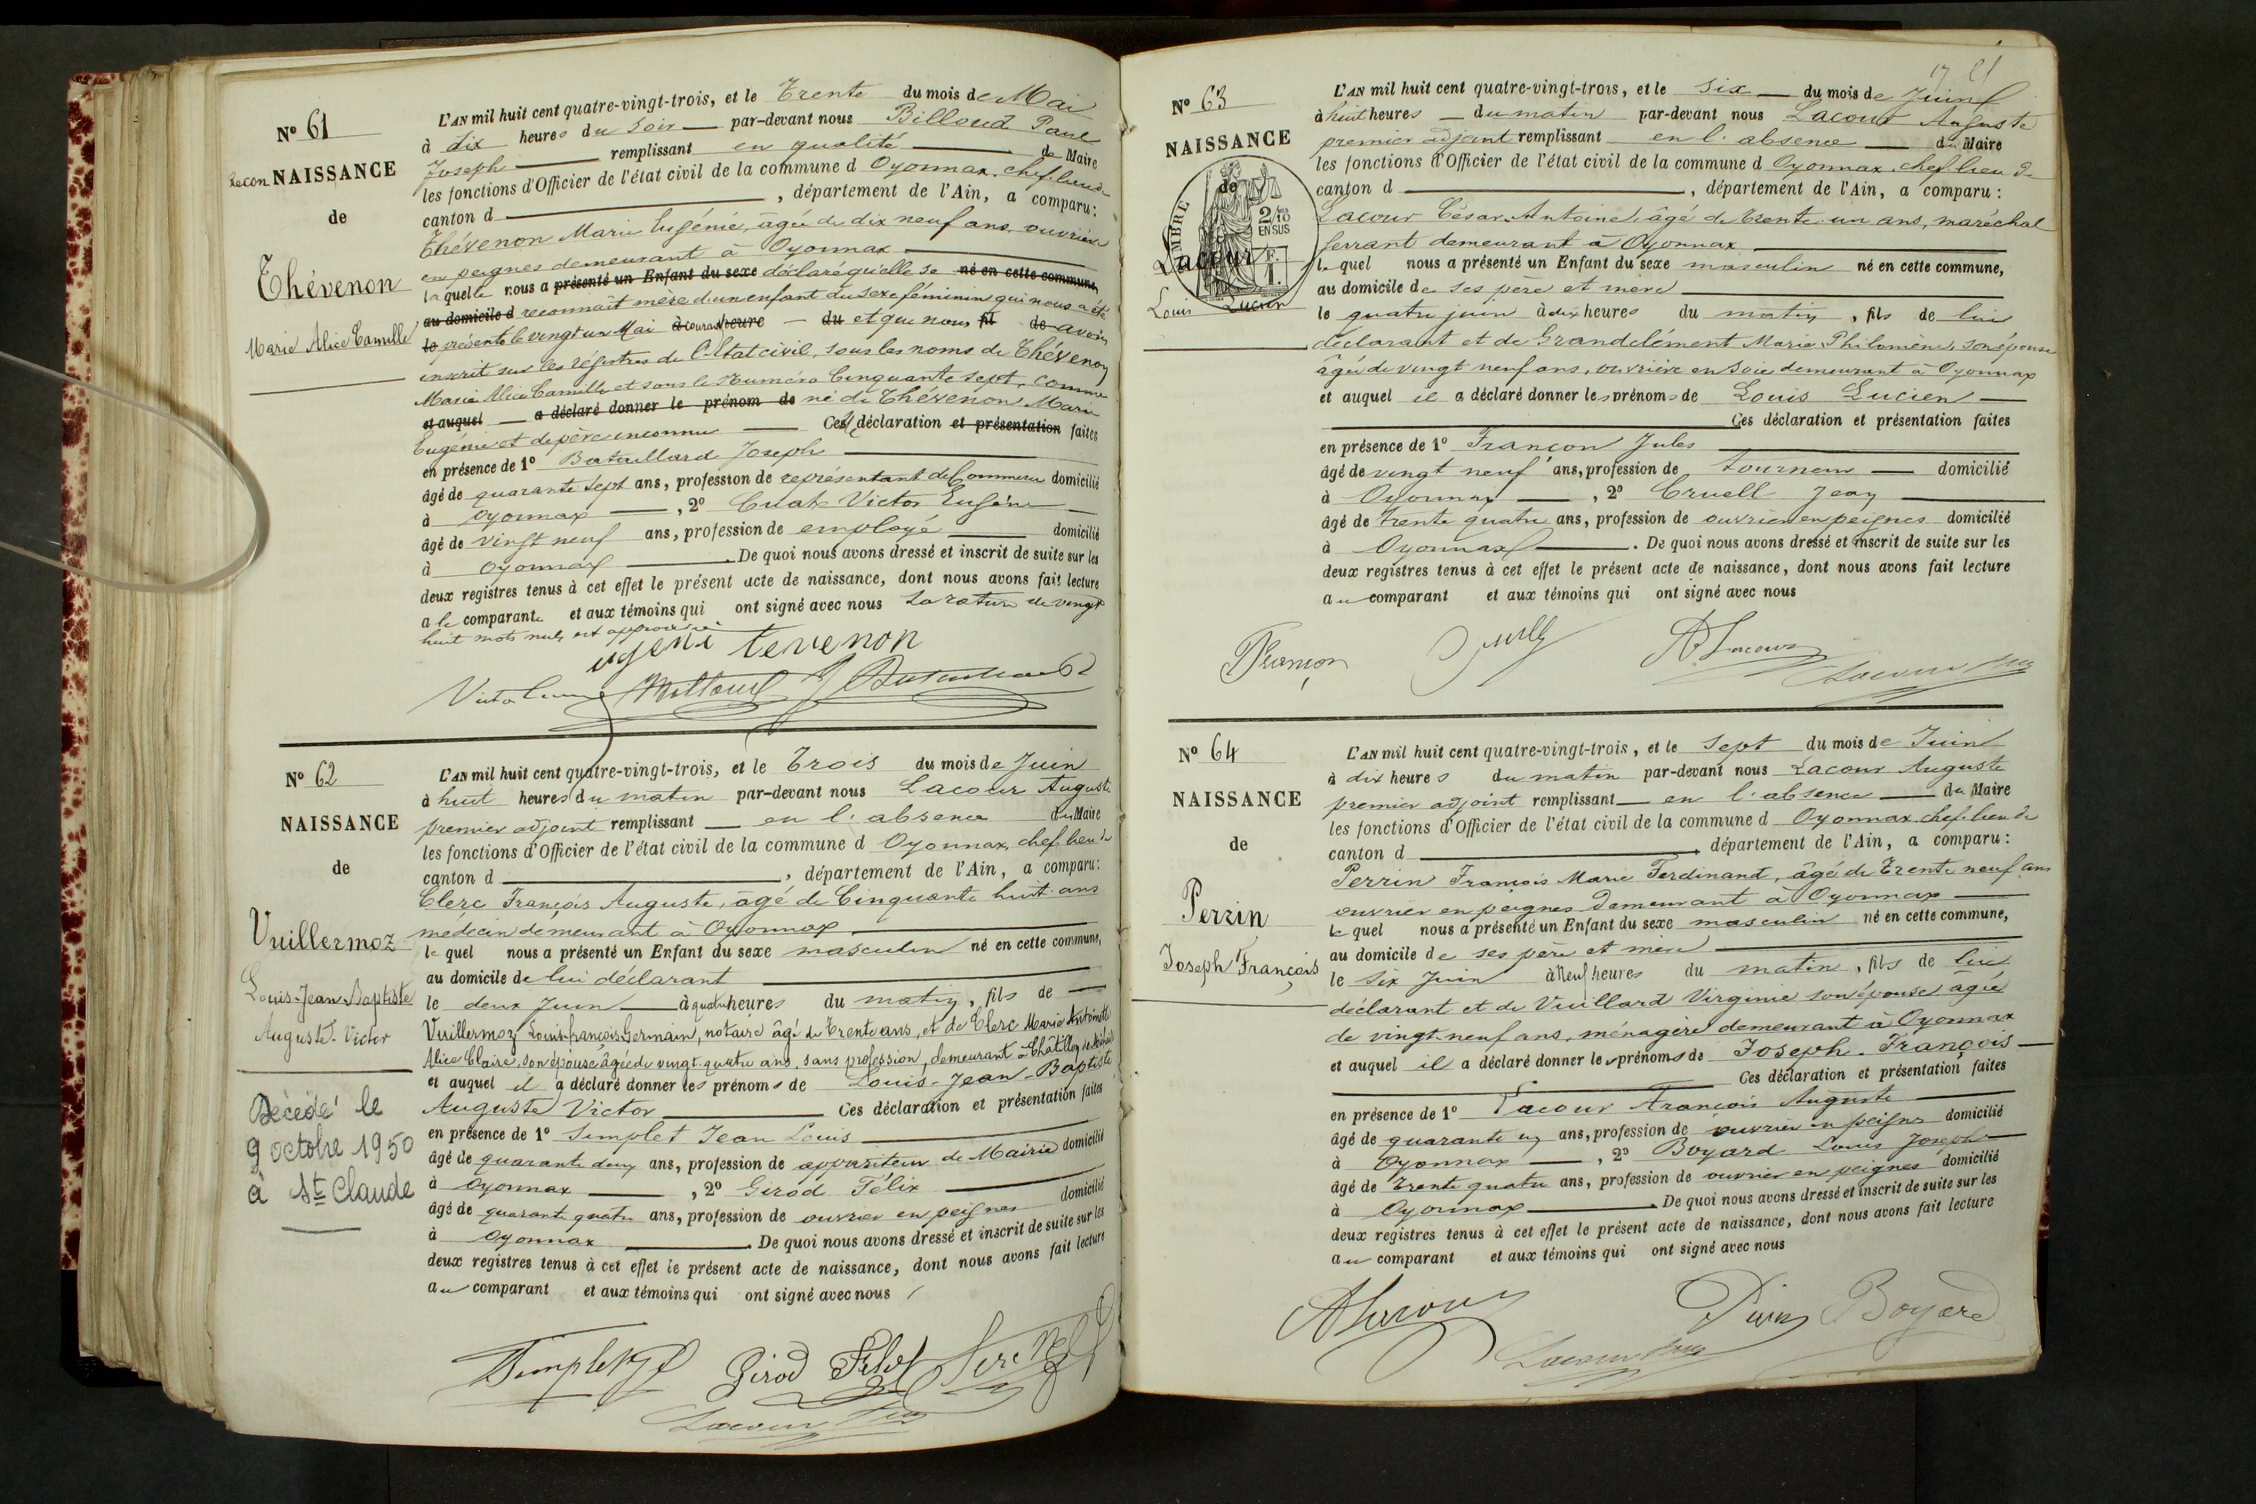 N° 61
Recon NAISSANCE
de
Thévenon
Marie Alice Camille
L'AN mil huit cent quatre-vingt-trois, et le Trente du mois de Mai
à dix heures du soir par-devant nous Billoud Paul
Joseph remplissant en qualité de Maire
les fonctions d'Officier de l'état civil de la commune d Oyonnax, chef-lieu de
canton d , département de l'Ain, a comparu:
Thévenon Marie Eugénie, âgée de dix neuf ans, ouvrière
en peignes demeurant à Oyonnax
laquelle nous a présenté un Enfant du sexe déclaré qu'elle se né en cette commune,
au domicile d reconnaît mère d'un enfant du sexe féminin qui nous a été
le présenté le vingt un Mai à heure du et que nous fil de avons
inscrit sur les régistres de l'Etat civil, sous les noms de Thévenon
Marie Alice Camille et sous le Numéro Cinquante sept, comme
et auquel a déclaré donner le prénom de né de Thévenon Marie
Eugénie et de père inconnu Ces déclaration et présentation faites
en présence de 1° Bataillard Joseph
âgé de quarante sept ans, profession de représentant de Commerce domicilié
à Oyonnax , 2° Cuat Victor Eugène
âgé de vingt neuf ans, profession de employé domicilié
à Oyonnax . De quoi nous avons dressé et inscrit de suite sur les
deux registres tenus à cet effet le présent acte de naissance, dont nous avons fait lecture
a la comparante et aux témoins qui ont signé avec nous La rature de vingt
huit mots nuls est approuvée.
ugeni tevenon
N° 62
NAISSANCE
de
Vuillermoz
Louis-Jean-Baptiste
Auguste-Victor
Décédé le
9 octobre 1950
à St Claude
L'AN mil huit cent quatre-vingt-trois, et le Trois du mois de Juin
à huit heures du matin par-devant nous Lacour Auguste
premier adjoint remplissant en l'absence du Maire
les fonctions d'Officier de l'état civil de la commune d Oyonnax, chef-lieu de
canton d , département de l'Ain, a comparu:
Clerc François Auguste, âgé de Cinquante huit ans
médecin demeurant à Oyonnax
lequel nous a présenté un Enfant du sexe masculin né en cette commune,
au domicile de lui déclarant
le deux Juin à quatre heures du matin, fils de
Vuillermoz Louis-françois Germain, notaire âgé de Trente ans, et de Clerc Marie Antoinette
Alice Claire, son épouse âgée de vingt quatre ans, sans profession, demeurant à Châtillon de Michaille
et auquel il a déclaré donner les prénoms de Louis-Jean-Baptiste
Auguste Victor Ces déclaration et présentation faites
en présence de 1° Simplet Jean Louis
âgé de quarante deux ans, profession de appariteur de Mairie domicilié
à Oyonnax , 2° Girod Félix
âgé de quarante quatre ans, profession de ouvrier en peignes domicilié
à Oyonnax . De quoi nous avons dressé et inscrit de suite sur les
deux registres tenus à cet effet le présent acte de naissance, dont nous avons fait lecture
au comparant et aux témoins qui ont signé avec nous
Simplet Girod
Lacour
17 21
N° 63
NAISSANCE
de
TIMBRE
2/10 EN SUS
F. 1.
Lacour
Louis Lucien
L'AN mil huit cent quatre-vingt-trois, et le six du mois de Juin
à huit heures du matin par-devant nous Lacour Auguste
premier adjoint remplissant en l'absence du Maire
les fonctions d'Officier de l'état civil de la commune d Oyonnax, chef lieu de
canton d , département de l'Ain, a comparu:
Lacour César Antoine, âgé de trente un ans, maréchal
ferrant demeurant à Oyonnax
lequel nous a présenté un Enfant du sexe masculin né en cette commune,
au domicile de ses père et mere
le quatre juin à dix heures du matin, fils de lui
déclarant et de Grandclément Marie Philomène, son épouse
âgée de vingt neuf ans, ouvrière en soie demeurant à Oyonnax
et auquel il a déclaré donner les prénoms de Louis Lucien
Ces déclaration et présentation faites
en présence de 1° Françon Jules
âgé de vingt neuf ans, profession de tourneur domicilié
à Oyonnax , 2° Cruell Jean
âgé de trente quatre ans, profession de ouvrier en peignes domicilié
à Oyonnax . De quoi nous avons dressé et inscrit de suite sur les
deux registres tenus à cet effet le présent acte de naissance, dont nous avons fait lecture
au comparant et aux témoins qui ont signé avec nous
Françon Lacour
Lacour
N° 64
NAISSANCE
de
Perrin
Joseph François
L'AN mil huit cent quatre-vingt-trois, et le sept du mois de Juin
à dix heures du matin par-devant nous Lacour Auguste
premier adjoint remplissant en l'absence du Maire
les fonctions d'Officier de l'état civil de la commune d Oyonnax chef-lieu de
canton d , département de l'Ain, a comparu:
Perrin François Marie Ferdinand, âgé de trente neuf ans
ouvrier en peignes demeurant à Oyonnax
lequel nous a présenté un Enfant du sexe masculin né en cette commune,
au domicile de ses père et mère
le six Juin à Neuf heures du matin, fils de lui
déclarant et de Vuillard Virginie son épouse âgée
de vingt-neuf ans, ménagère demeurant à Oyonnax
et auquel il a déclaré donner les prénoms de Joseph-François
Ces déclaration et présentation faites
en présence de 1° Lacour François Auguste
âgé de quarante un ans, profession de ouvrier en peignes domicilié
à Oyonnax , 2° Boyard Louis Joseph
âgé de trente quatre ans, profession de ouvrier en peignes domicilié
à Oyonnax . De quoi nous avons dressé et inscrit de suite sur les
deux registres tenus à cet effet le présent acte de naissance, dont nous avons fait lecture
au comparant et aux témoins qui ont signé avec nous
ALacour Boyard
Lacour